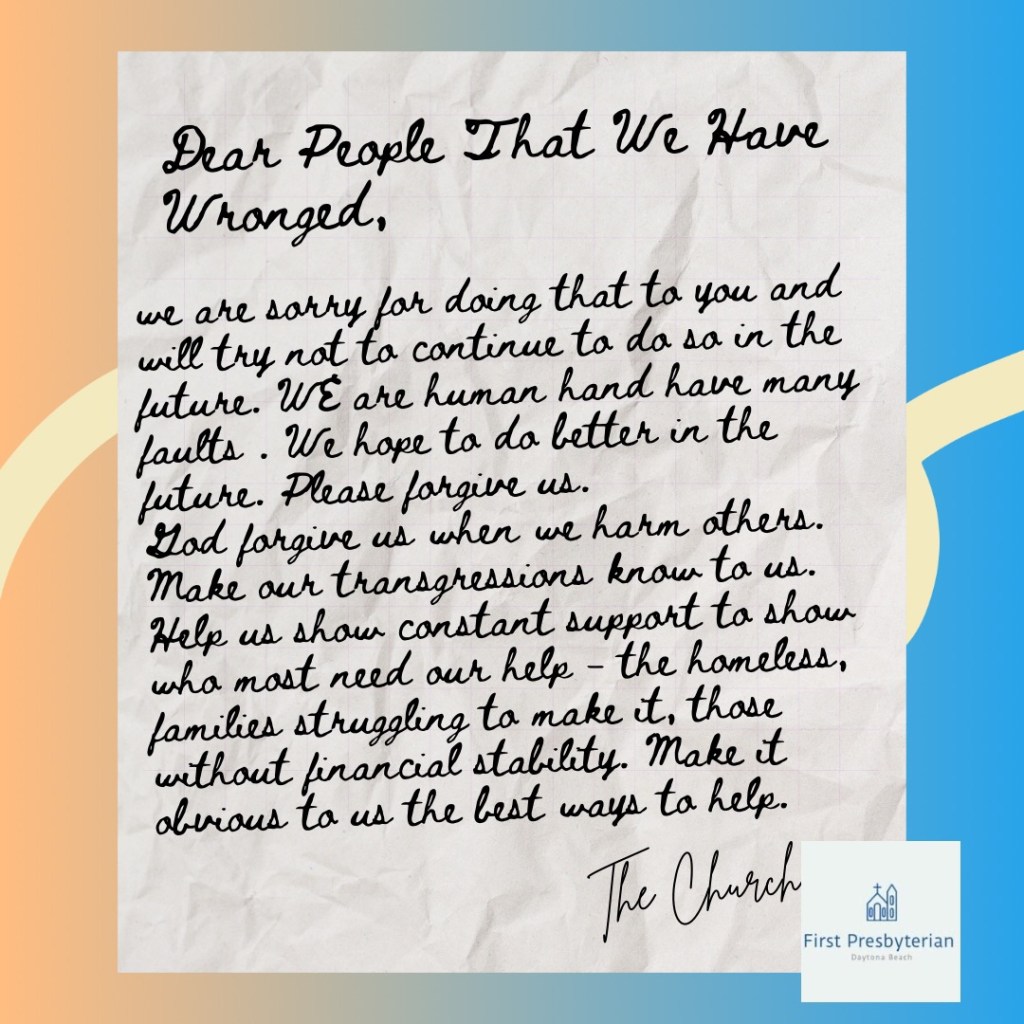 Dear People That We Have
Wronged,
we are sorry for doing that to you and
will try not to continue to do so in the
future. WE are human hand have many
faults . We hope to do better in the
future. Please forgive us.
God forgive us when we harm others.
Make our transgressions know to us.
Help us show constant support to show
who most need our help - the homeless,
families struggling to make it, those
without financial stability. Make it
obvious to us the best ways to help.
The Church
First Presbyterian
Daytona Beach